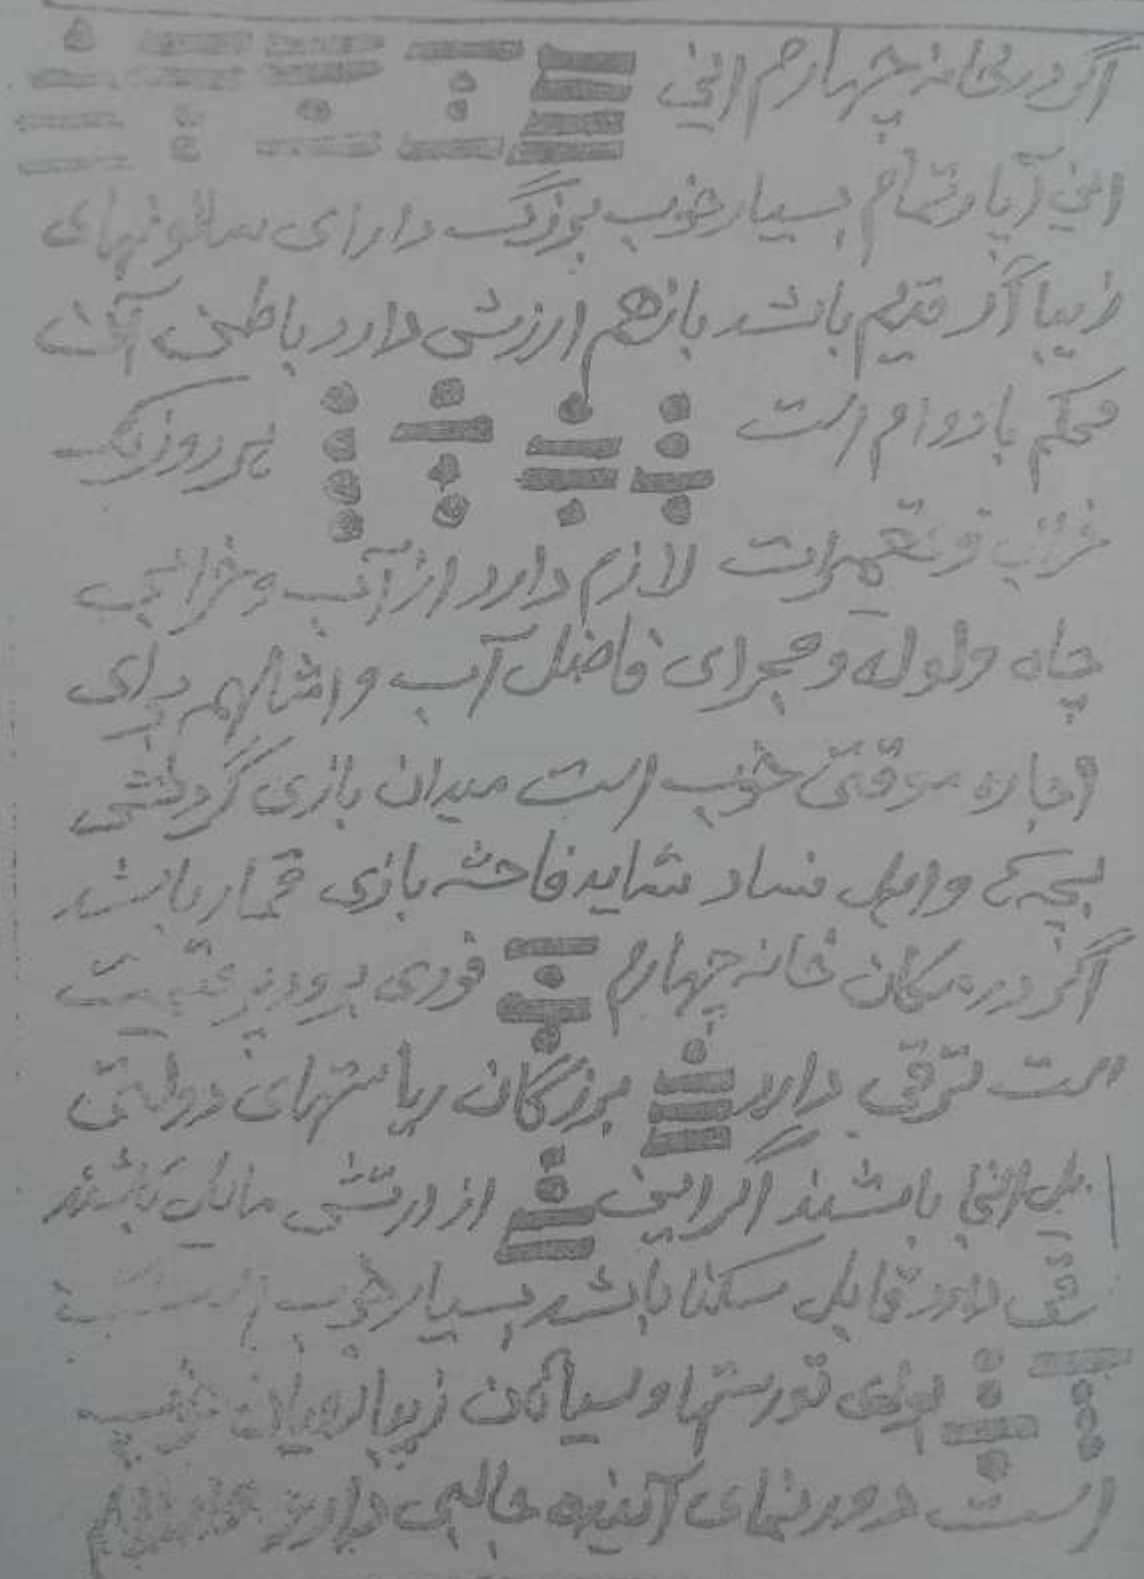 اگر در خانه چهارم این
این آپارتمان بسیار خوب بزرگ دارای سالونهای
زیبا اگر قدیم باشد بازهم ارزش دارد باطن آن
محکم بادوام است هر روز یک
خراب و تعمیرات لازم دارد از آب و خرابی
چاه و لوله و مجرای فاضل آب و امثالهم برای
اجاره موقتی خوب است میدان بازی گردش
بچه و اهل فساد شاید فاحشه بازی قمار باشد
اگر در مکان خانه چهارم فوری برود پر قیمت
است ترقی دارد بزرگان ریاستهای دولتی
اینجا باشند اگر این از ارتشی مالک باشند
قابل سکنا باشد بسیار خوب است
برای توریستها و سیاحان زیبا رویان خوب
است دور نمای آینده جالبی دارد